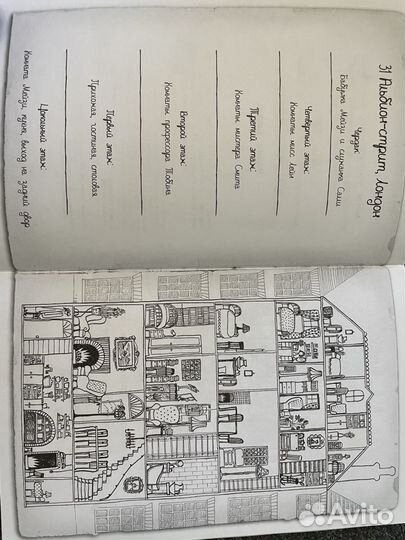 31 Альбион-стрит, Лондон
Чердак:
Бабушка Мейзи и служанка Салли
Четвертый этаж:
Комнаты мисс Лейн
Третий этаж:
Комнаты мистера Смита
Второй этаж:
Комнаты профессора Тобина
Первый этаж:
Прихожая, гостиная, столовая
Цокольный этаж:
Комната Мейзи, кухня, выход на задний двор
Avito